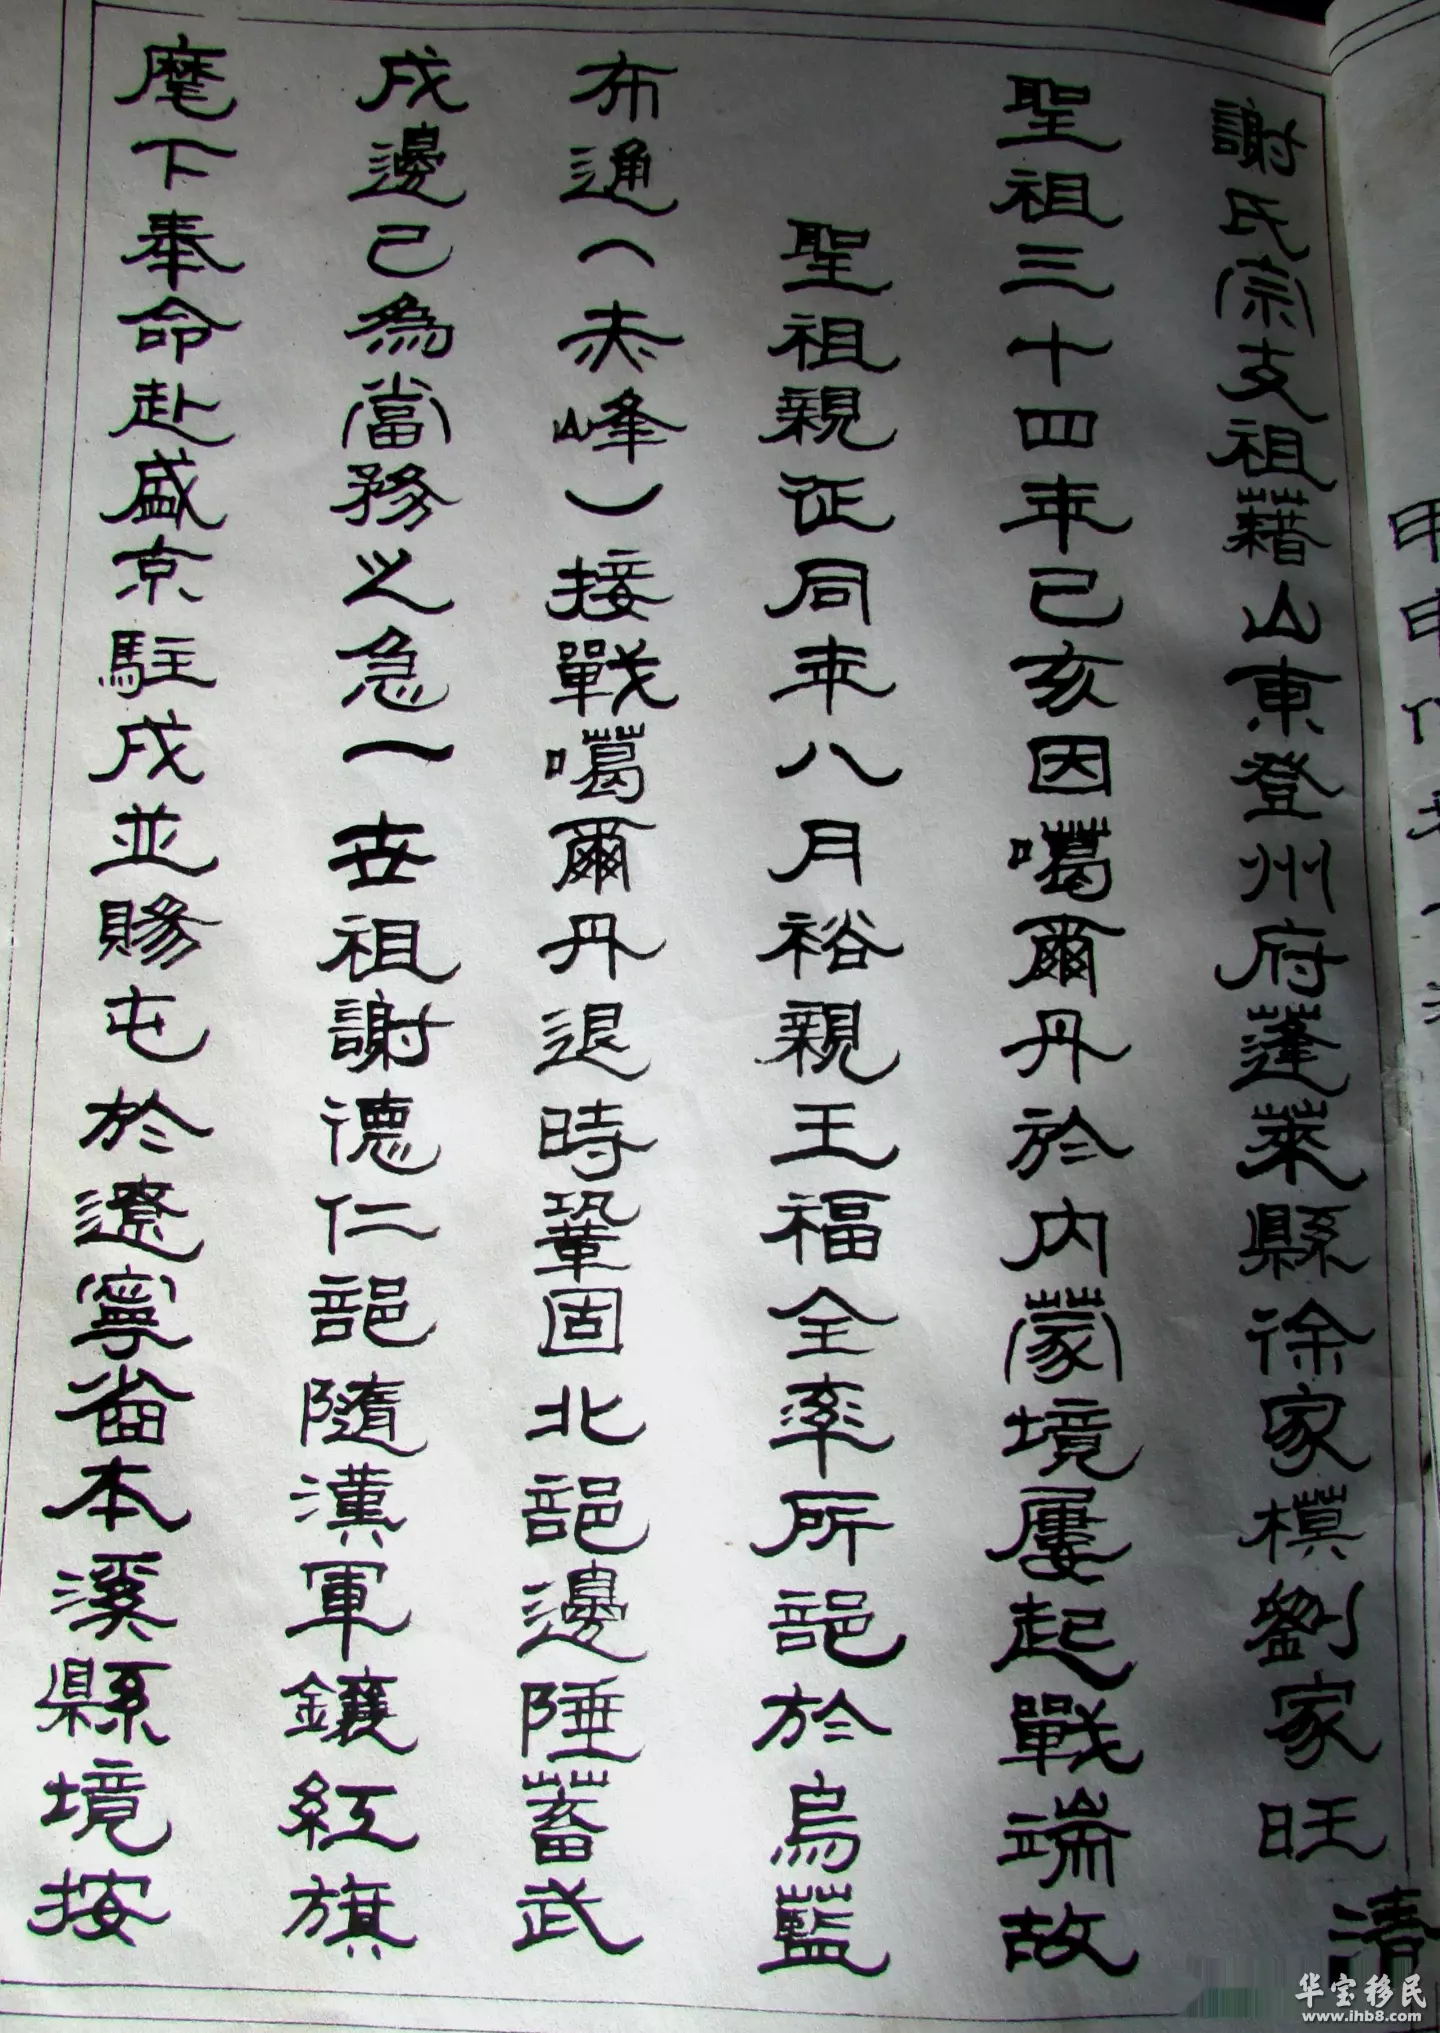 謝氏宗支祖藉山東登州府蓬萊縣徐家樸劉家旺清
聖祖三十四年己亥因噶爾丹於內蒙境屢起戰端故
聖祖親征同年八月裕親王福全率所部於烏藍
布通(赤峰)接戰噶爾丹退時鞏固北部邊陲蓄武
戍邊已為當務之急一世祖謝德仁部隨漢軍鑲紅旗
麾下奉命赴盛京駐戍並賜屯於遼寧省本溪縣境按
华宝移民
www.ihb8.com